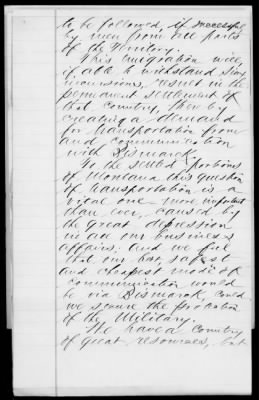 to be followed, if successful
by men from all parts
of the Territory.
This emigration will,
if able to withstand Sioux
incursions, result in the
permanent settlement of
that country, thereby
creating a demand
for transportation from
and communication
with Bismarck.
To the settled portions
of Montana this question
of transportation is a
vital one more important
than ever, caused by
the great depression
in all our business
affairs. And we feel
that our best, safest
and cheapest mode of
communication would
be via Bismarck, could
we secure the protection
of the Military.
We have a country
of great resources, but